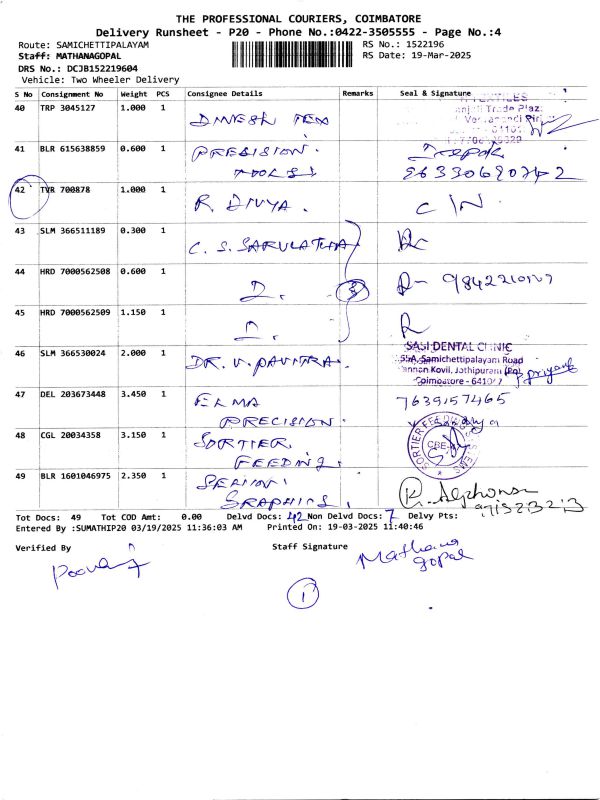 THE PROFESSIONAL COURIERS, COIMBATORE
Delivery Runsheet - P20 - Phone No.:0422-3505555 - Page No.:4
Route: SAMICHETTIPALAYAM
RS No.: 1522196
Staff: MATHANAGOPAL
RS Date: 19-Mar-2025
DRS No.: DCJB152219604
Vehicle: Two Wheeler Delivery
S No Consignment No Weight PCS Consignee Details Remarks Seal & Signature
40 TRP 3045127 1.000 1 DINESH TEX
41 BLR 615638859 0.600 1 PRECISION Deepak
TOOLS 9633069072
42 TVR 700878 1.000 1 R. DIVYA. C/N
43 SLM 366511189 0.300 1 C. S. SARULATHA
44 HRD 7000562508 0.600 1 2. 3
45 HRD 7000562509 1.150 1
46 SLM 366530024 2.000 1 DR. V. PAVITRA.
SASI DENTAL CLINIC
Samichettipalayam Road
Kovil, Jothipuram (Po)
Coimbatore -
P. priyanka
47 DEL 203673448 3.450 1 ELMA 7639157465
PRECISION.
48 CGL 20034358 3.150 1 SORTIER
FEEDING.
49 BLR 1601046975 2.350 1 SERION
GRAPHICS. K. Alphonsa
Tot Docs: 49 Tot COD Amt: 0.00 Delvd Docs: 42 Non Delvd Docs: 7 Delvy Pts:
Entered By :SUMATHIP20 03/19/2025 11:36:03 AM Printed On: 19-03-2025 11:40:46
Verified By Staff Signature
Mathana
gopal
1